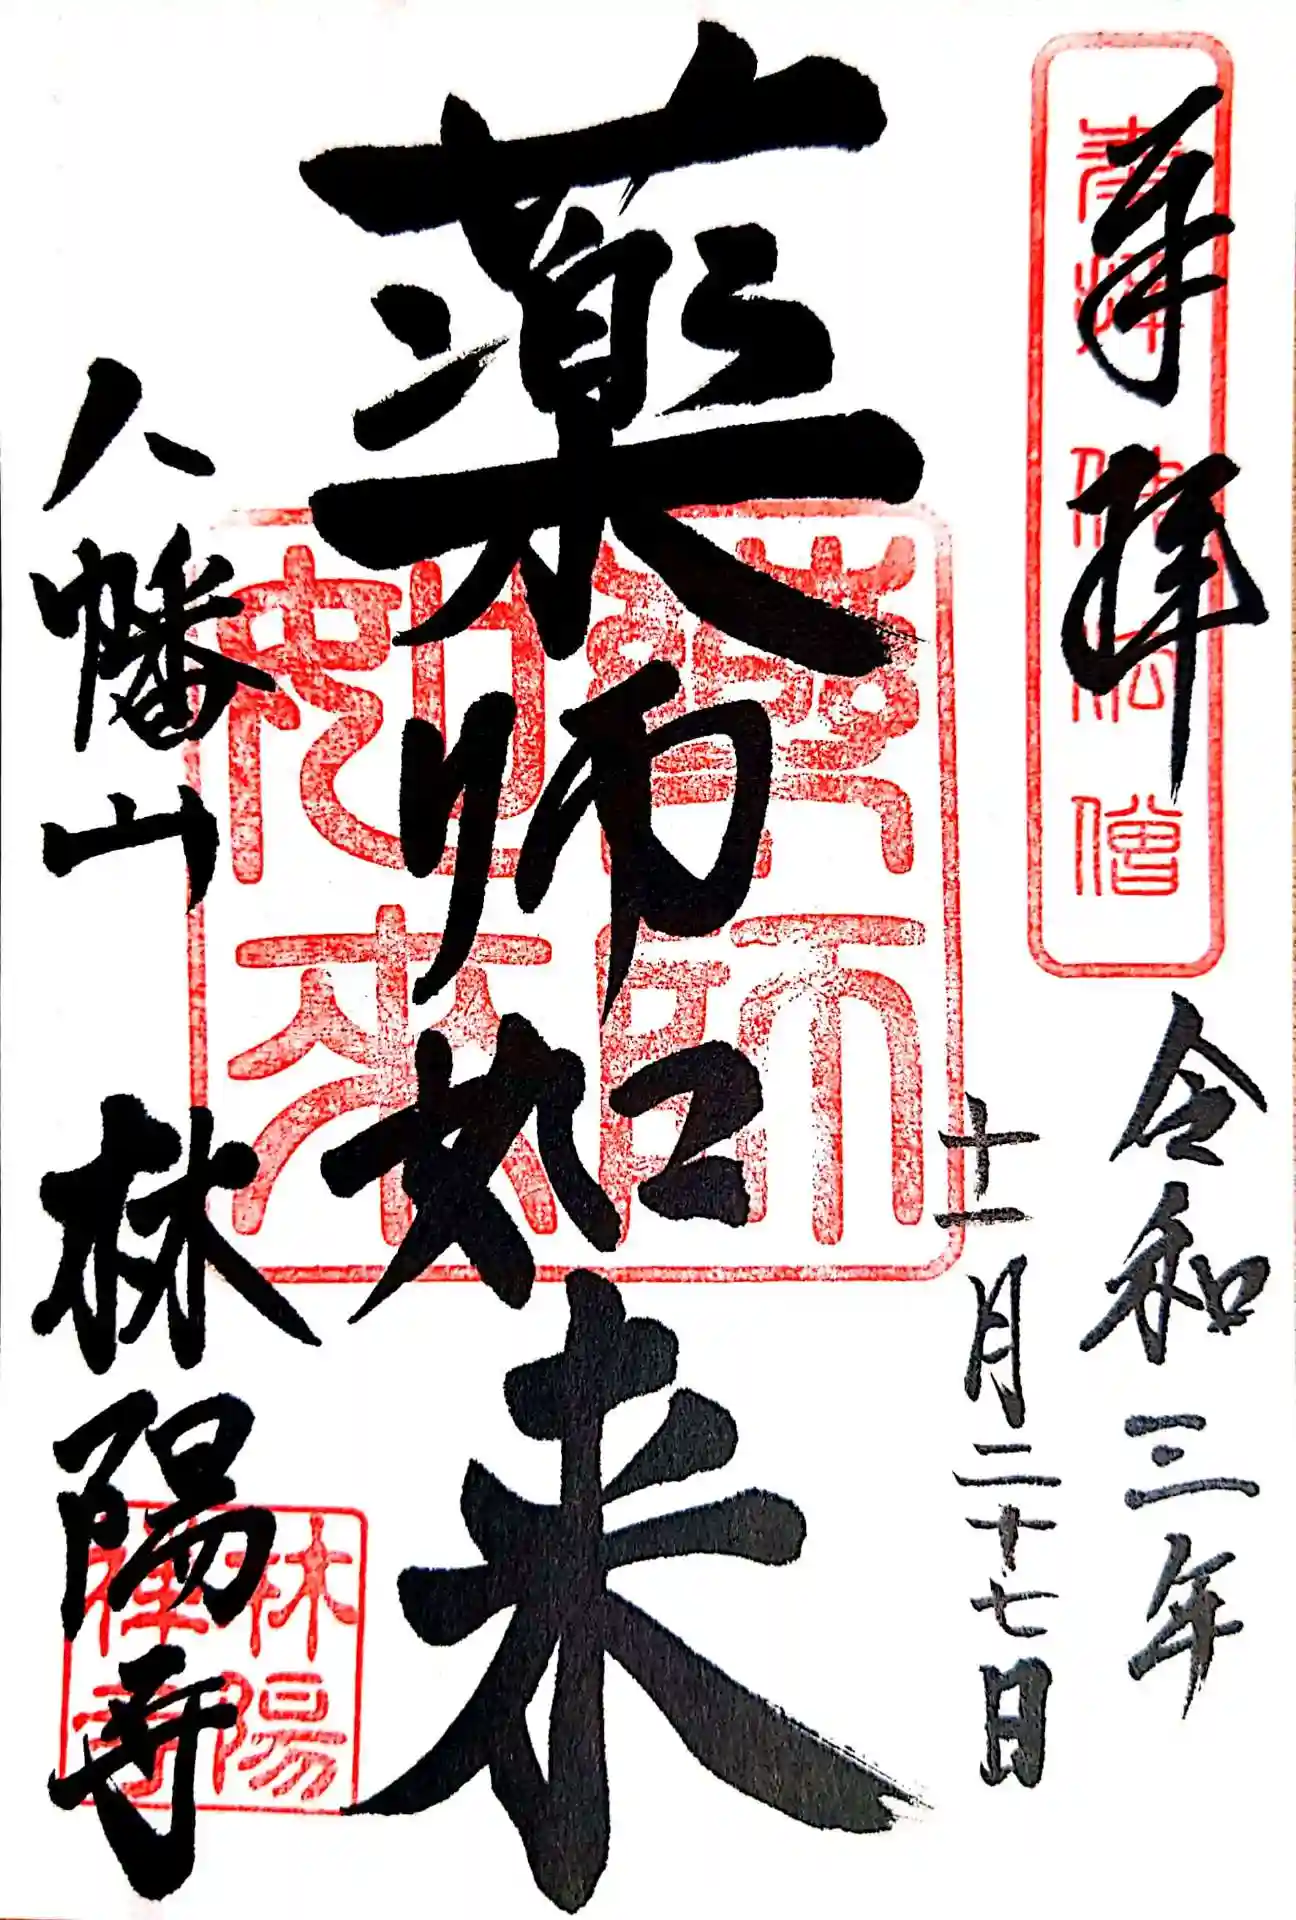 奉拝
奉拝佛法僧
令和三年
十一月二十七日
薬師如来
藥師如来
八幡山 林陽寺
林陽禅寺